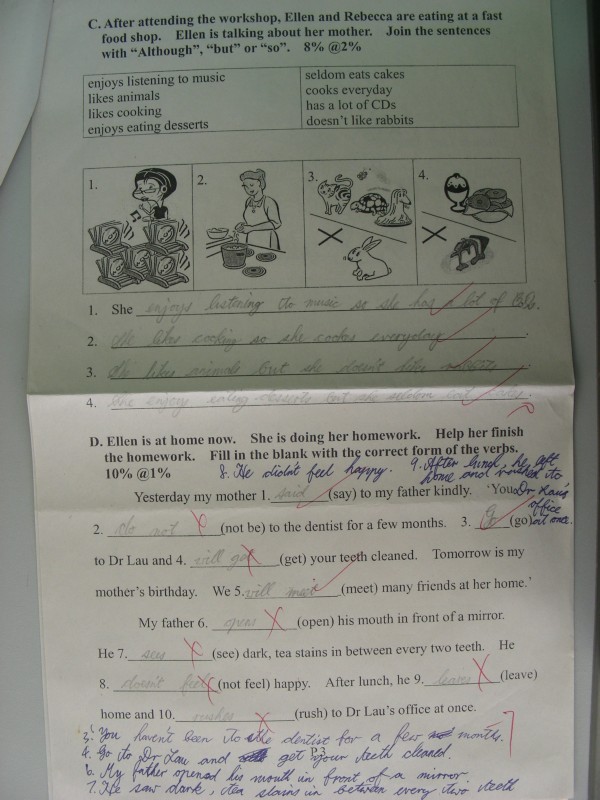 C. After attending the workshop, Ellen and Rebecca are eating at a fast
food shop. Ellen is talking about her mother. Join the sentences
with "Although", "but" or "so". 8% @2%
enjoys listening to music
likes animals
likes cooking
enjoys eating desserts
seldom eats cakes
cooks everyday
has a lot of CDs
doesn't like rabbits
1. 2. 3. 4.
1. She enjoys listening to music so she has a lot of CDs.
2. She likes cooking so she cooks everyday.
3. She likes animals but she doesn't like rabbits.
4. She enjoy eating desserts but she seldom eat cakes.
D. Ellen is at home now. She is doing her homework. Help her finish
the homework. Fill in the blank with the correct form of the verbs.
10% @1%
8. He didn't feel happy. 9. After lunch, he left
home and rushed to
Dr Lau's
office
at once.
Yesterday my mother 1. said (say) to my father kindly. 'You
2. do not (not be) to the dentist for a few months. 3. Go (go)
to Dr Lau and 4. will get (get) your teeth cleaned. Tomorrow is my
mother's birthday. We 5. will meet (meet) many friends at her home.'
My father 6. (open) his mouth in front of a mirror.
He 7. sees (see) dark, tea stains in between every two teeth. He
8. doesn't feel (not feel) happy. After lunch, he 9. leaves (leave)
home and 10. rushes (rush) to Dr Lau's office at once.
2. You haven't been to the dentist for a few months.
4. Go to Dr Lau and get your teeth cleaned.
P.3
6. My father opened his mouth in front of a mirror.
7. He saw dark, tea stains in between every two teeth